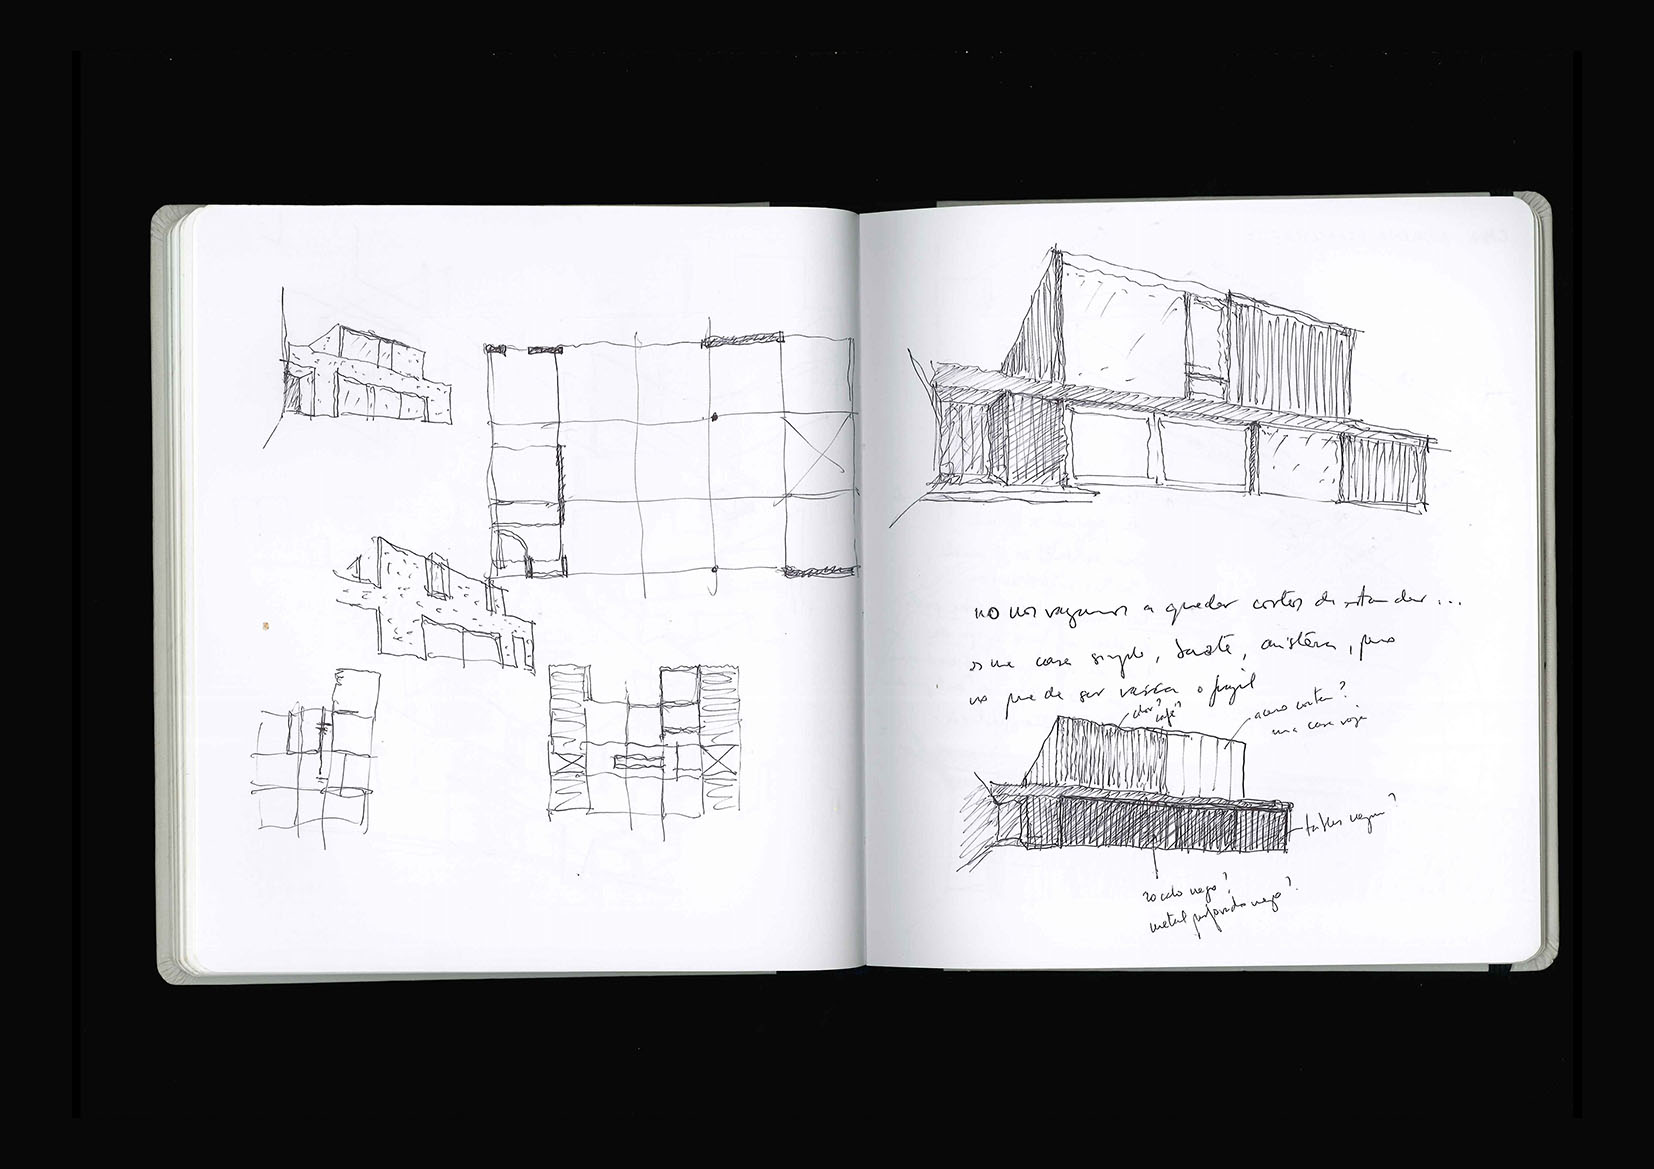 no nos vayamos a quedar cortos de standar ...
es una casa simple, austera, pero
no puede ser vasca o fragil
color?
café?
acero corten?
una casa roja
tablas negras?
zocalo negro?
metal perforado negro?